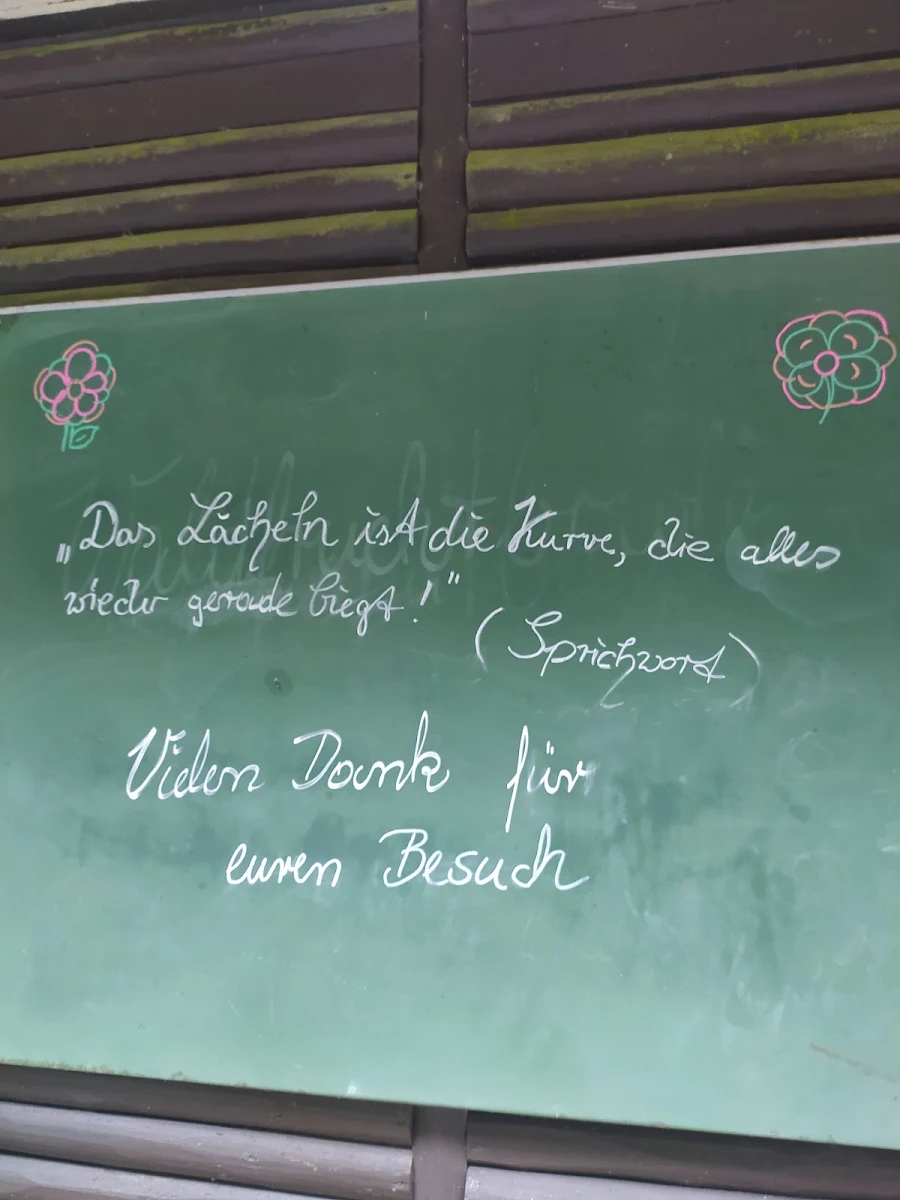 „Das Lächeln ist die Kurve, die alles
wieder gerade biegt!"
(Sprichwort)
Vielen Dank für
euren Besuch